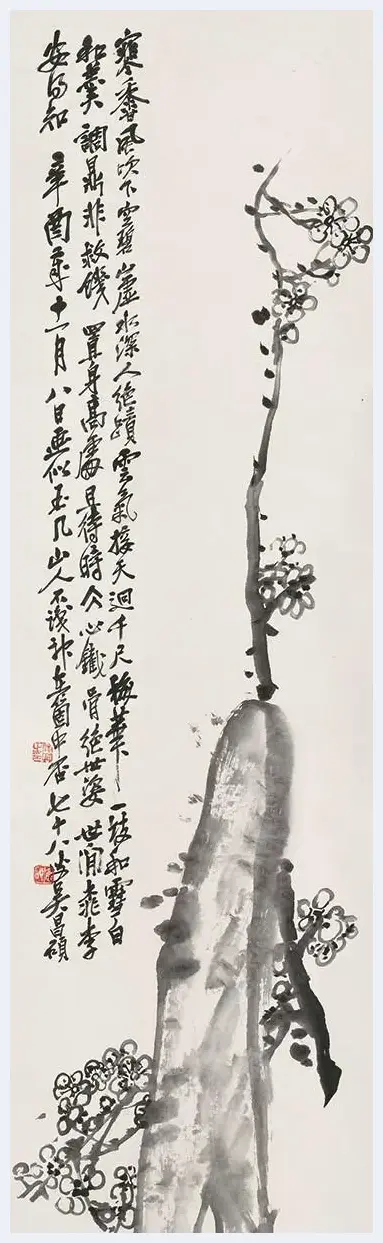 寒香風吹下空碧山虛水深人絕蹟雲氣接天迴千尺梅華一枝和雪白
和羹調鼎非救饑置身高處且待時仌心鐵骨絕世姿世間桃李
安得知辛酉歲十一月八日畫似玉几山人不識箇中否七十八叟吳昌碩